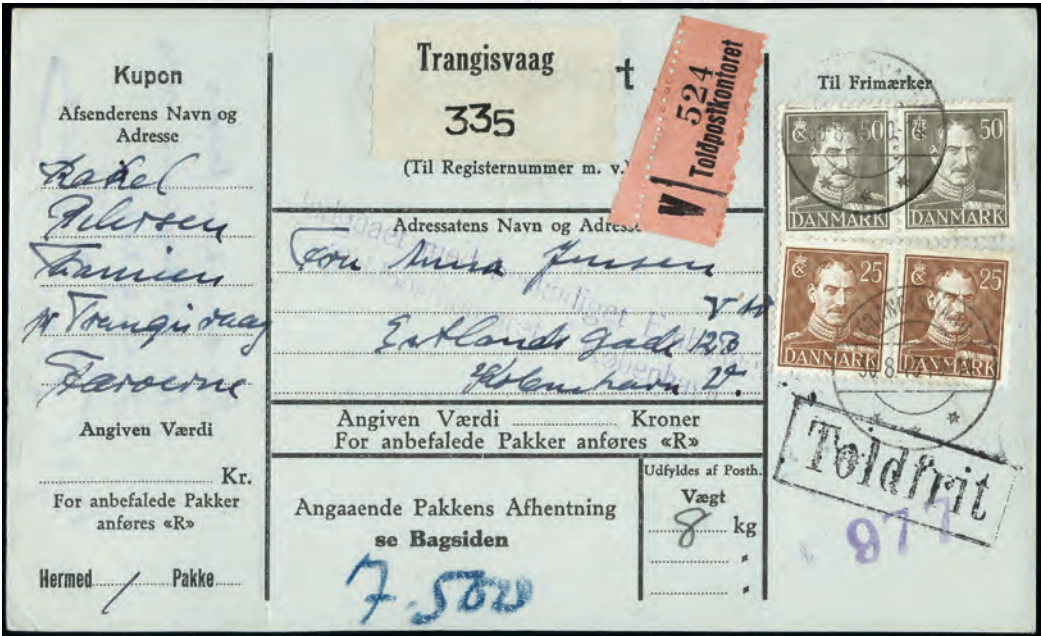 Kupon
Afsenderens Navn og
Adresse
Rakel
Petersen
pr Trangisvaag
Færøerne
Angiven Værdi
Kr.
For anbefalede Pakker
anføres «R»
Hermed 1 Pakke
Trangisvaag
335
t
(Til Registernummer m. v.)
V 524
Toldpostkontoret
Adressatens Navn og Adresse
Fru Anna Jensen
Estlands Gade
København V.
Angiven Værdi Kroner
For anbefalede Pakker anføres «R»
Angaaende Pakkens Afhentning
se Bagsiden
7.500
Udfyldes af Posth.
Vægt
8 kg
"
"
Til Frimærker
50 50
DANMARK DANMARK
25 25
DANMARK DANMARK
Toldfrit
977